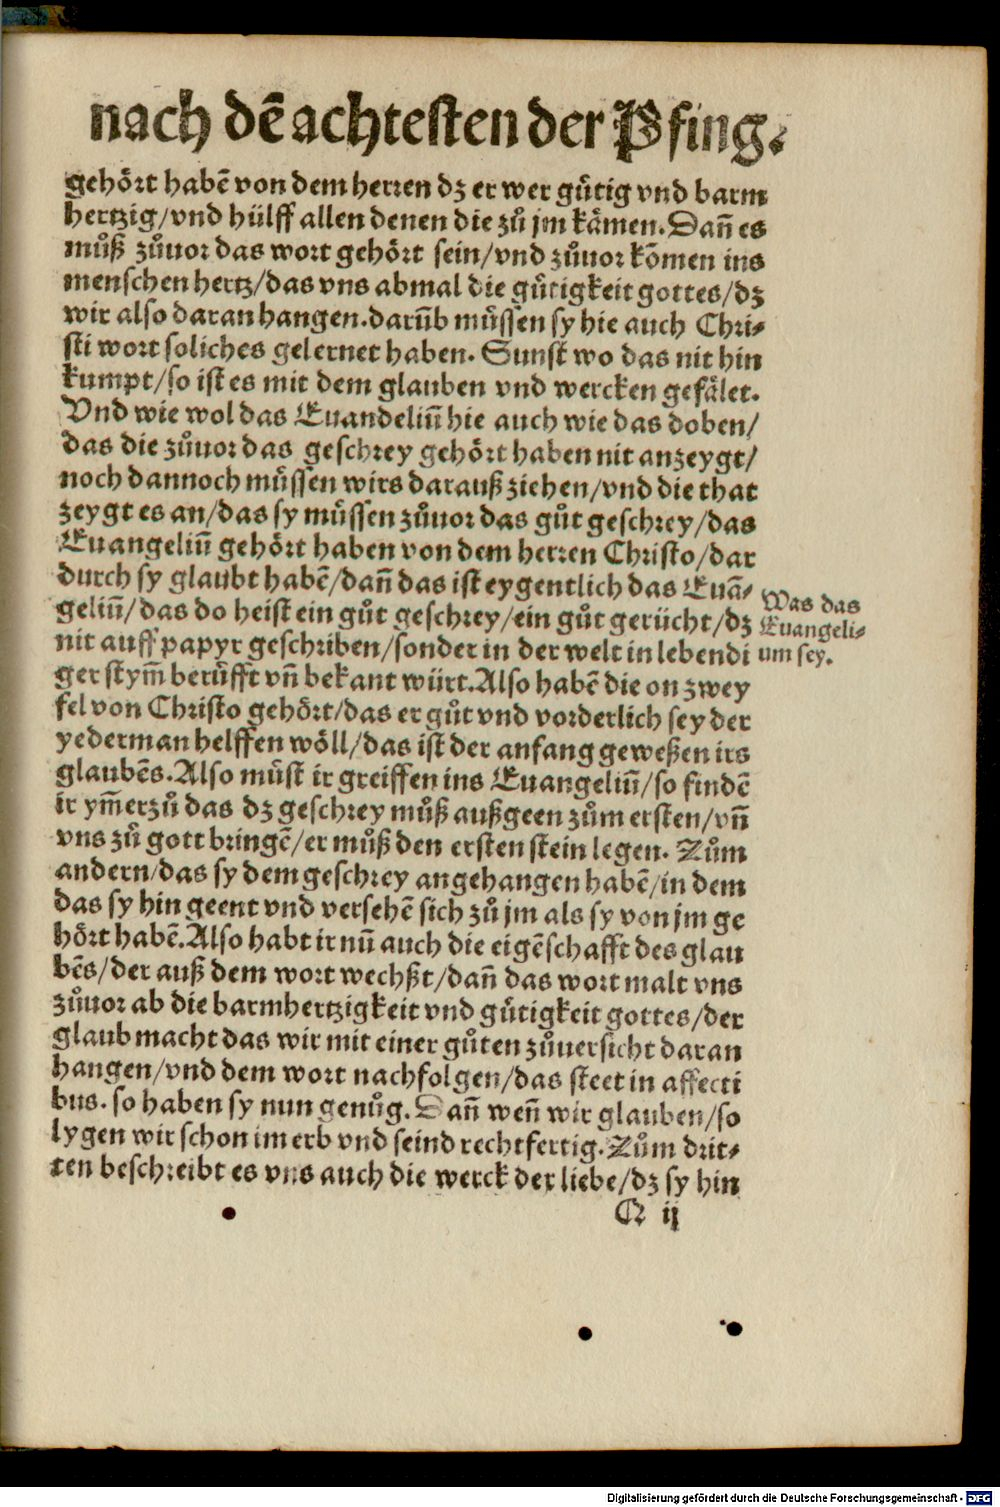 nach dē achtesten der Pfing.
gehoͤrt habē von dem herren dz er wer guͤtig vnd barm
hertzig/vnd huͤlff allen denen die zuͦ jm kaͤmen. Dañ es
muͦß zuͦuor das wort gehoͤrt sein/vnd zuͦuor kōmen ins
menschen hertz/das vns abmal die guͤtigkeit gottes/dz
wir also daran hangen. darūb muͤssen sy hie auch Chri-
sti wort soliches gelernet haben. Sunst wo das nit hin
kumpt/so ist es mit dem glauben vnd wercken gefaͤlet.
Vnd wie wol das Euandeliū hie auch wie das doben/
das die zuͦuor das geschrey gehoͤrt haben nit anzeygt/
noch dannoch muͤssen wirs darauß ziehen/vnd die that
zeygt es an/das sy muͤssen zuͦuor das guͦt geschrey/das
Euangeliū gehoͤrt haben von dem herren Christo/dar
durch sy glaubt habē/dañ das ist eygentlich das Euā-
geliū/das do heist ein guͦt geschrey/ein guͦt geruͤcht/dz
nit auff papyr geschriben/sonder in der welt in lebendi
ger stym̄ beruͤfft vñ bekant wuͤrt. Also habē die on zwey
fel von Christo gehoͤrt/das er guͦt vnd vorderlich sey der
yederman helffen woͤll/das ist der anfang geweßen irs
glaubēs. Also muͤst ir greiffen ins Euangeliū/so findē
ir ym̄erzuͦ das dz geschrey muͦß außgeen zuͦm ersten/vñ
vns zuͦ gott bringē/er muͦß den ersten stein legen. Zuͦm
andern/das sy dem geschrey angehangen habē/in dem
das sy hin geent vnd versehē sich zuͦ jm als sy von jm ge
hoͤrt habē. Also habt ir nū auch die eigēschafft des glau
bēs/der auß dem wort wechßt/dañ das wort malt vns
zuͦuor ab die barmhertzigkeit vnd guͤtigkeit gottes/der
glaub macht das wir mit einer guͦten zuͦuersicht daran
hangen/vnd dem wort nachfolgen/das steet in affecti
bus. so haben sy nun genuͦg. Dañ weñ wir glauben/so
lygen wir schon im erb vnd seind rechtfertig. Zuͦm drit-
ten beschreibt es vns auch die werck der liebe/dz sy hin
Q ij
Was das
Euangeli-
um sey.
Digitalisierung gefördert durch die Deutsche Forschungsgemeinschaft - DFG